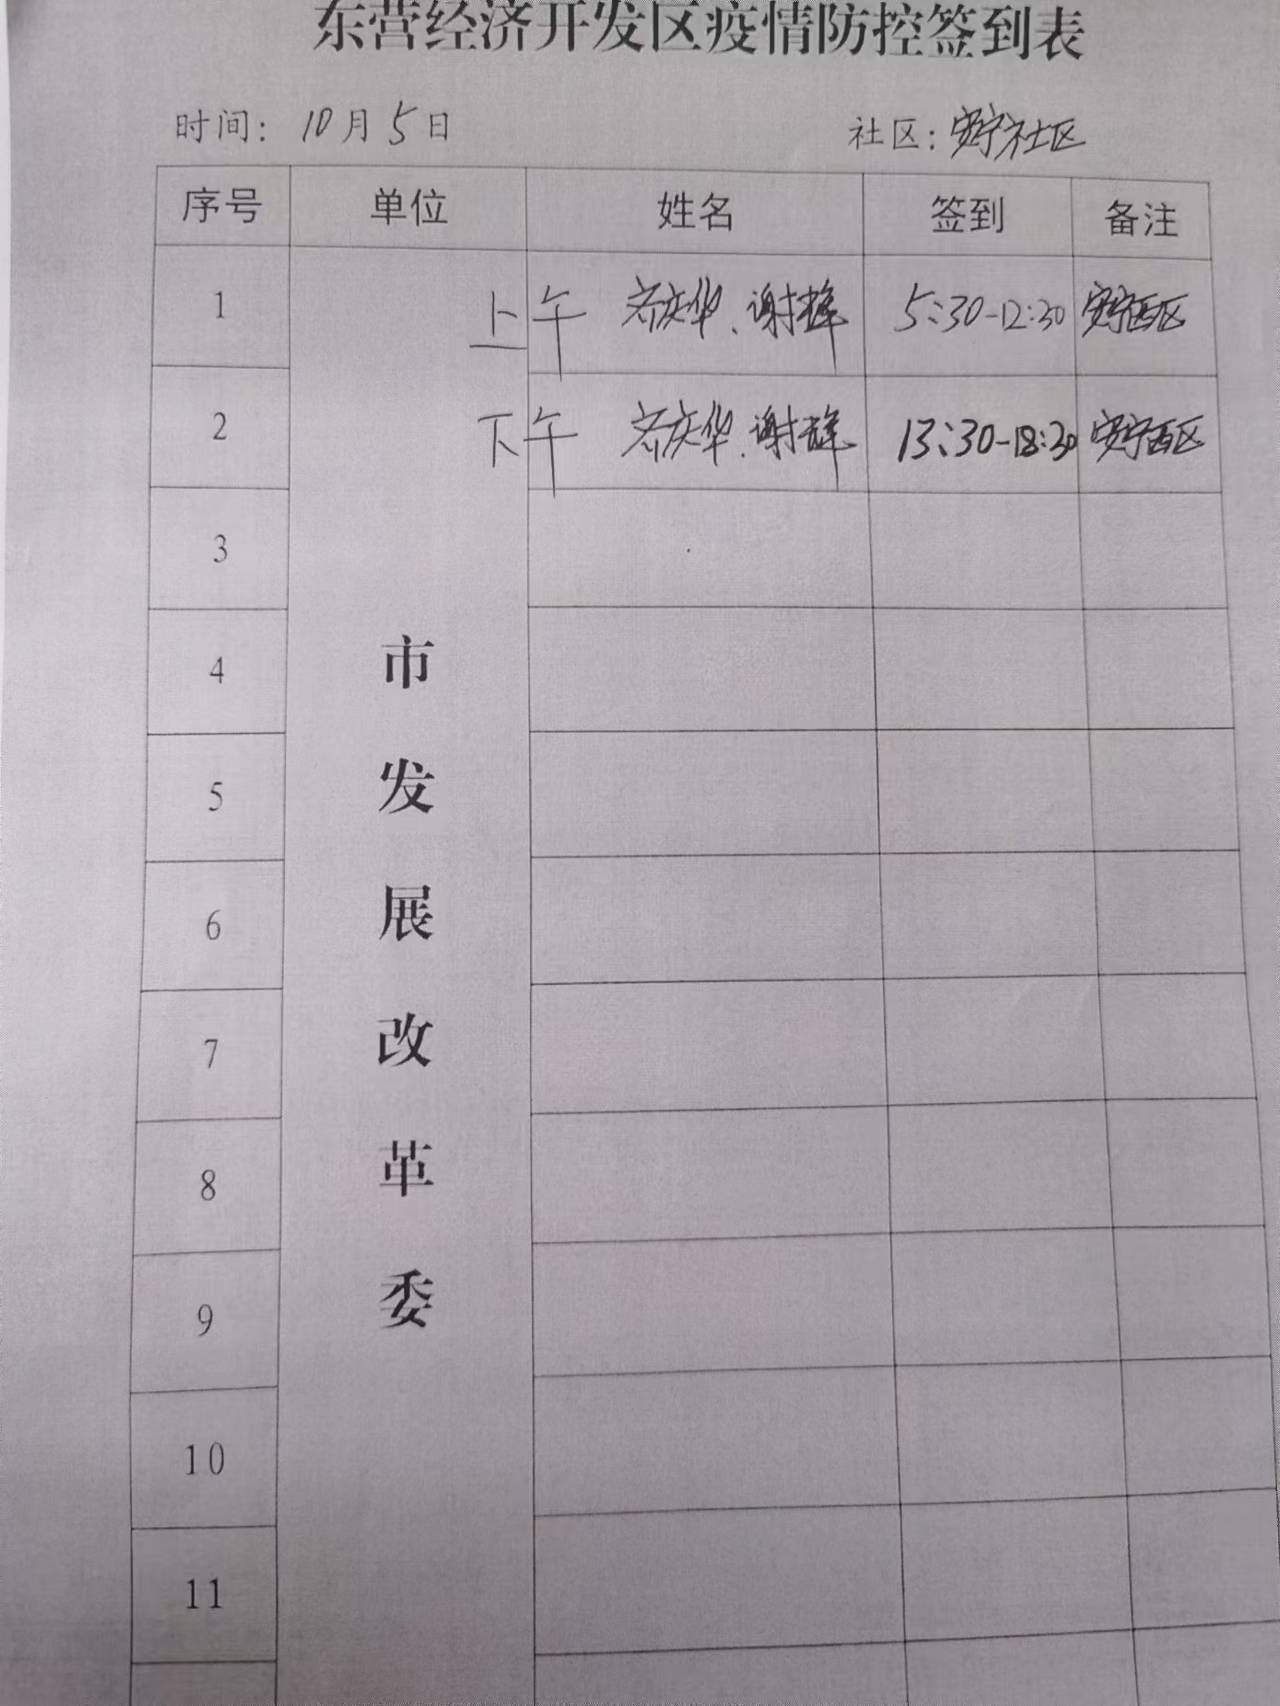 东营经济开发区疫情防控签到表
时间：10月5日 社区：安宁社区
序号 单位 姓名 签到 备注
1 上午 庆华、谢辉 5:30-12:30 安宁西区
2 下午 庆华、谢辉 13:30-18:30 安宁西区
3
4
5
6
7
8
9
10
11
市发展改革委